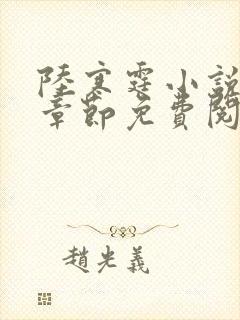 陸寒霆小説
章節免費閱
趙光義